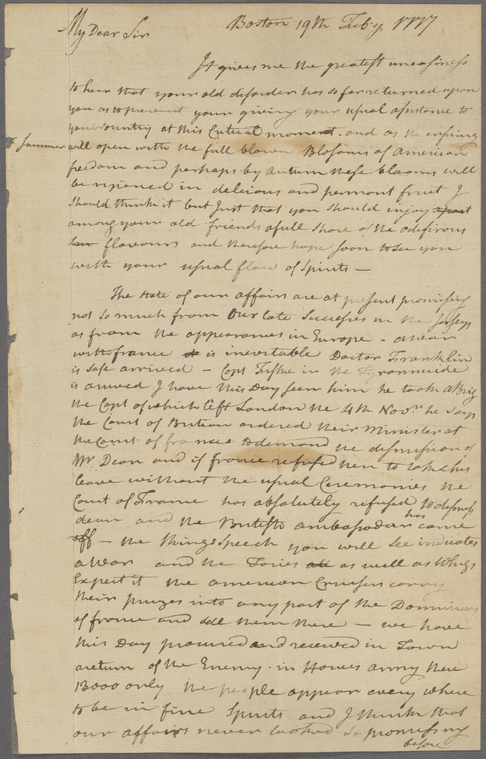 My Dear Sir
Boston 19th Feby 1777
It gives me the greatest uneasiness
to hear that your old disorder has so far returned upon
you as to prevent your giving your usual assistance to
your Country at this Critical moment. and as the ensuing
summer will open with the full blown Blossoms of American
freedom and perhaps by Autumn these blooms will
be ripened in delicious and permant fruit I
should think it but Just that you should injoy
among your old friends a full share of the odifirous
flavours and therefore hope soon to see you
with your usual flow of Spirits —
The state of our affairs are at present promising
not so much from Our late Successes in the Jerseys
as from the appearances in Europe - a war
with france is inevitable Doctor Franklin
is safe arrived - Capt Fiske in the Tyronnicide
is arrived I have this Day seen him he took a Brig
the Capt of which left London the 4th Novr. he says
the Court of Britian ordered their Minister at
the Court of france to demand the dismission of
Mr Dean and if France refused him to take his
leave without the usual Ceremonies the
Court of France has absolutely refused to dismiss
dean and the British ambassador has came
off - the Kings Speech you will see indicates
a War and the Tories as well as Whigs
Expect it the american Cruisers carry
their prizes into any part of the Dominions
of france and sell them there - we have
this Day procured and received in Town
a return of the Enemy. in Howes army there
13000 only the people appear every where
to be in fine Spirits and I think that
our affairs never looked so promising
before